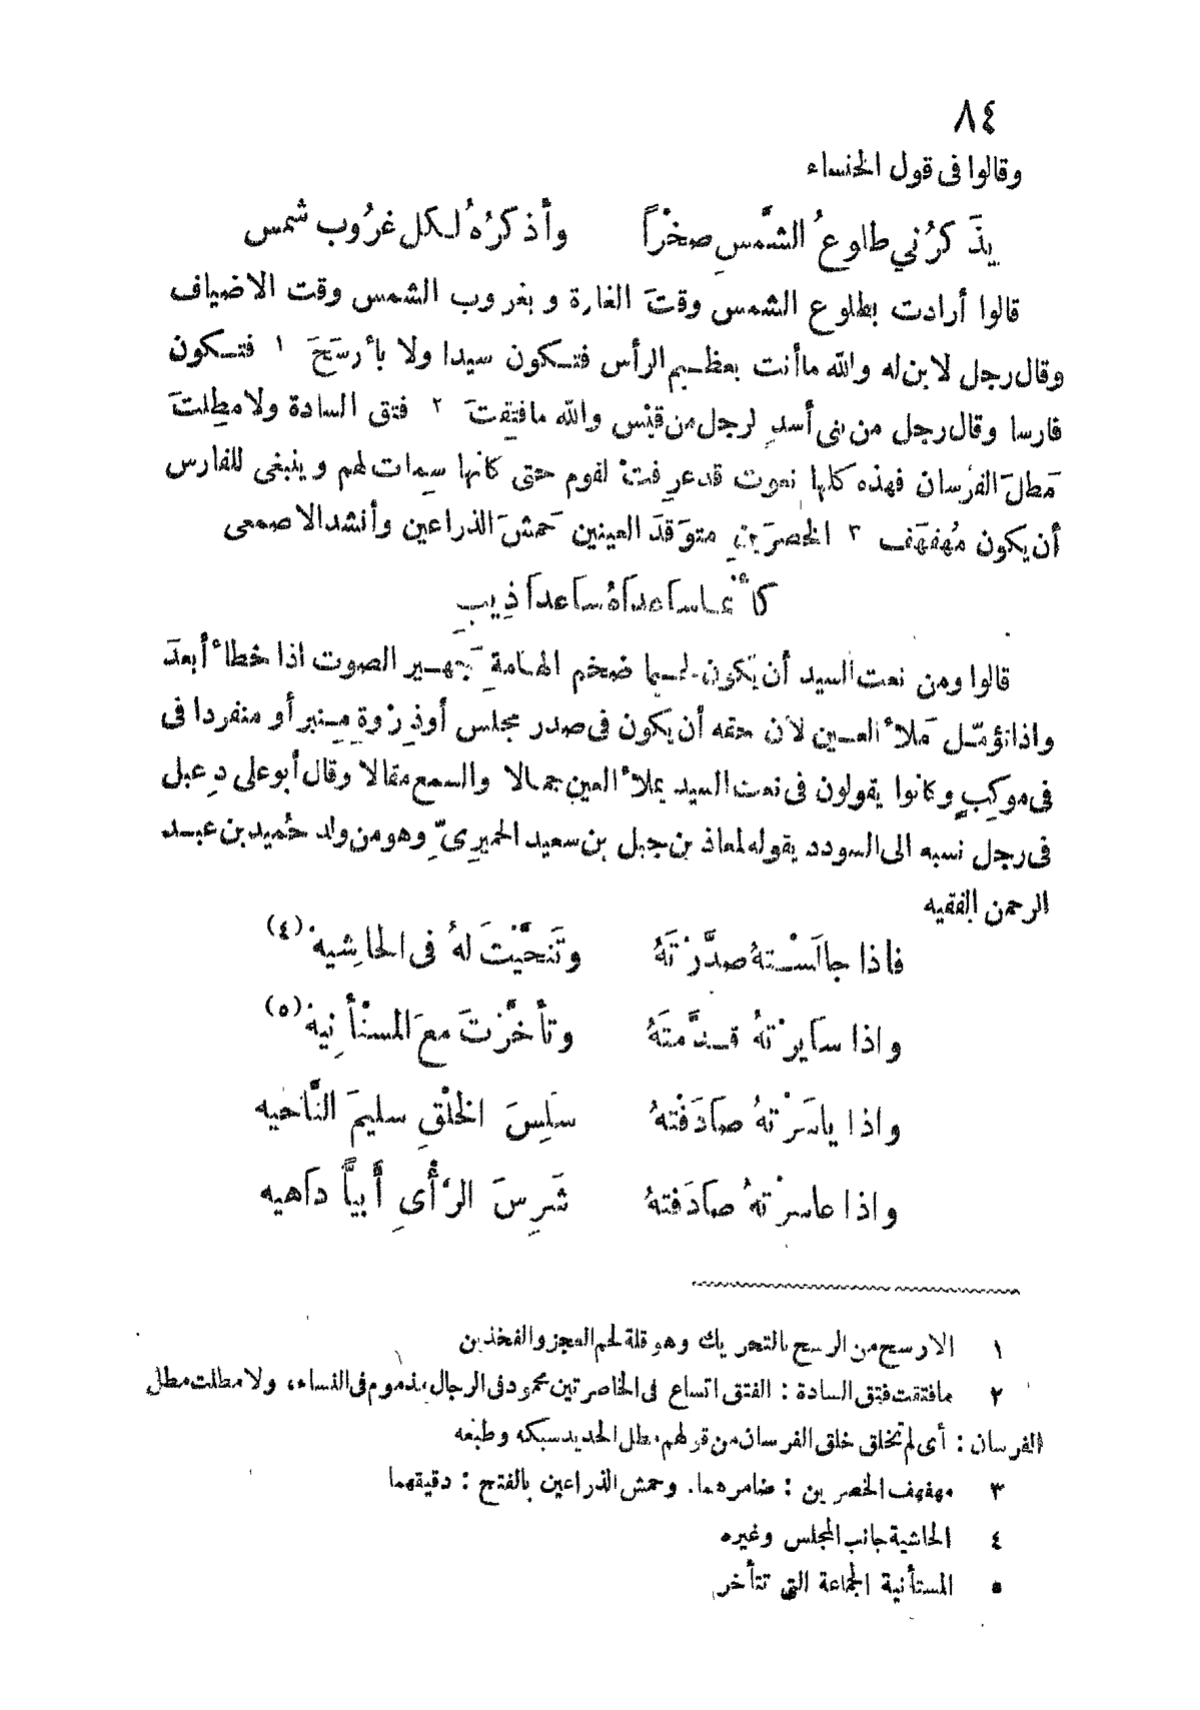 ٨٤
وقالوا فى قول الخنساء
يذَكرُني طلوعُ الشَّمسِ صخْراً وأذكرُهُ لكل غرُوب شمس
قالوا أرادت بطلوع الشمس وقتَ الغارة و بغروب الشمس وقت الاضياف
وقال رجل لابن له والله ما أنت بعظيم الرأس فتكون سيدا ولا بأرسَحَ ١ فتكون
فارسا وقال رجل من بنى أسدِ لرجل من قيْس والله ما فتِقتَ ٢ فتق السادة ولا مطِلتَ
مَطلَ الفرْسان فهذه كلها نعوت قد عرِفتْ لقوم حتى كانها سِمات لهم وينبغى للفارس
أن يكون مُهفهَف ٣ الخصرَينِ متوَقدَ العينين حَمشَ الذراعين وأنشد الاصمعى
كأنما ساعداهُ ساعدا ذِيبِ
قالوا ومن نعت السيد أن يَكون لحيما ضخم الهامةِ جَهير الصوت اذا خطاءَ أبعدَ
واذا تؤمّل مَلأَ العين لان حقه أن يكون فى صدر مجلس أو ذِرْوة مِنبر أو منفردا فى
فى موكِبٍ وكانوا يقولون فى نعت السيد يملأ العين جمالا والسمع مقالا وقال أبو على دِعبل
فى رجل نسبه الى السودد يقوله لمعاذ بن جبل بن سعيد الحميرِىّ وهو من ولد حُميد بن عبد
الرحمن الفقيه
فاذا جالَسْتهُ صدَّرْتَهُ وتَنحَّيْتَ لهُ فى الحاشِيهْ (٤)
واذا سايرْتهُ قدَّمتَهُ وتأخَّرْتَ معَ المستْأنِيهْ (٥)
واذا ياسَرْتهُ صادَفْتهُ سَلِسَ الخلْقِ سليمَ النَّاحيه
واذا عاسرْتهُ صادَفتهُ شَرِسَ الرَّأْىِ أَبيًّا داهيه
١ الارسح من الرسح بالتحريك وهو قلة لحم العجز والفخذين
٢ ما فتقت فتق السادة : الفتق اتساع فى الخاصرتين محمود فى الرجال مذموم فى النساء، ولا مطلت مطل
الفرسان : أى لم تخلق خلق الفرسان من قولهم مطل الحديد سبكه وطبعه
٣ مهفهف الخصرين : ضامرهما. وحمش الذراعين بالفتح : دقيقهما
٤ الحاشية جانب المجلس وغيره
٥ المستأنية الجماعة التى تتأخر